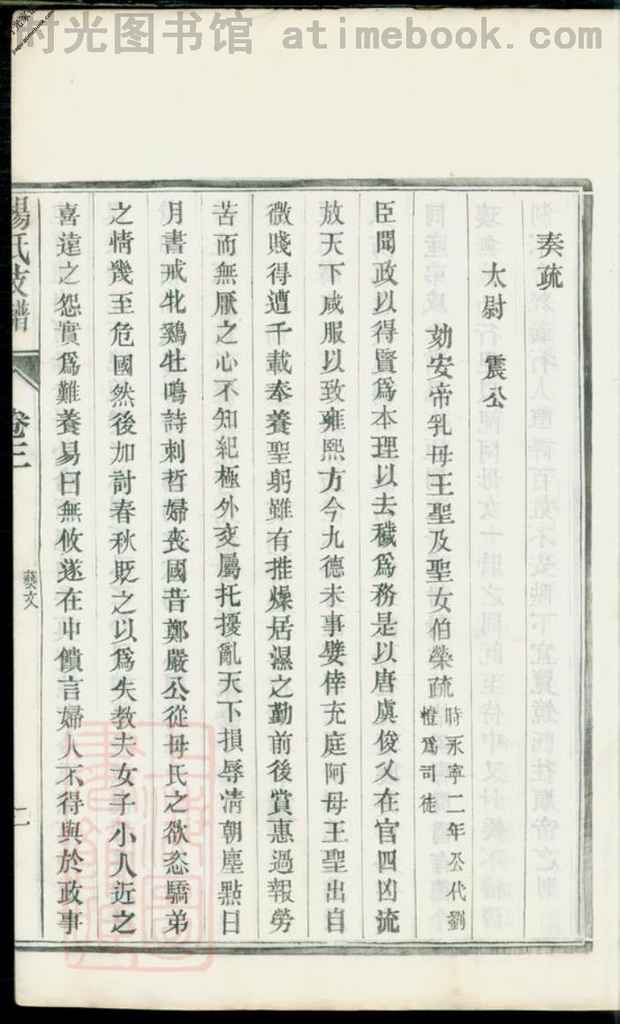 时光图书馆 atimebook.com
奏疏
太尉 震公
劾安帝乳母王聖及聖女伯榮疏 時永寧二年公代劉
愷爲司徒
臣聞政以得賢爲本理以去穢爲務是以唐虞俊乂在官四凶流
放天下咸服以致雍熙方今九德未事嬖倖充庭阿母王聖出自
微賤得遭千載奉養聖躬雖有推燥居濕之勤前後賞惠過報勞
苦而無厭之心不知紀極外交屬托擾亂天下損辱清朝塵點日
月書戒牝鷄牡鳴詩刺哲婦喪國昔鄭嚴公從母氏之欲恣驕弟
之情幾至危國然後加討春秋貶之以爲失教夫女子小人近之
喜遠之怨實爲難養易曰無攸遂在中饋言婦人不得與於政事
楊氏支譜
卷三
藝文
一